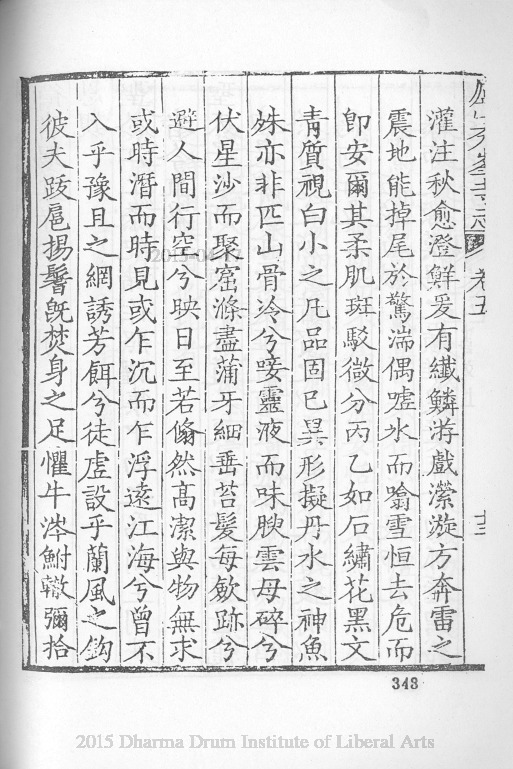 灌注秋愈澄鮮爰有纖鱗游戲瀠漩方奔雷之
震地能掉尾於驚湍偶噓氷而噏雪恒去危而
卽安爾其柔肌斑駁微分丙乙如石繡花黑文
青質視白小之凡品固已異形擬丹水之神魚
殊亦非匹山骨冷兮唼靈液而味腴雲母碎兮
伏星沙而聚窟滌盡蒲牙細垂苔髮每歛跡兮
避人間行空兮映日至若翛然高潔與物無求
或時潛而時見或乍沉而乍浮遠江海兮曾不
入乎豫且之網誘芳餌兮徒虛設乎蘭風之鈎
彼夫跋扈揚鬐旣焚身之足懼牛涔鮒轍彌拾
卷五
十三
343
2015 Dharma Drum Institute of Liberal Arts